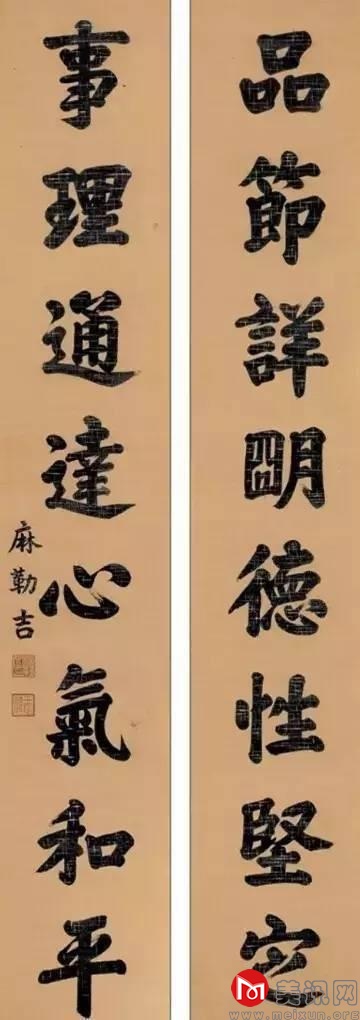 品節詳明德性堅定
事理通達心氣和平
麻勒吉
美讯网
www.meixun.net